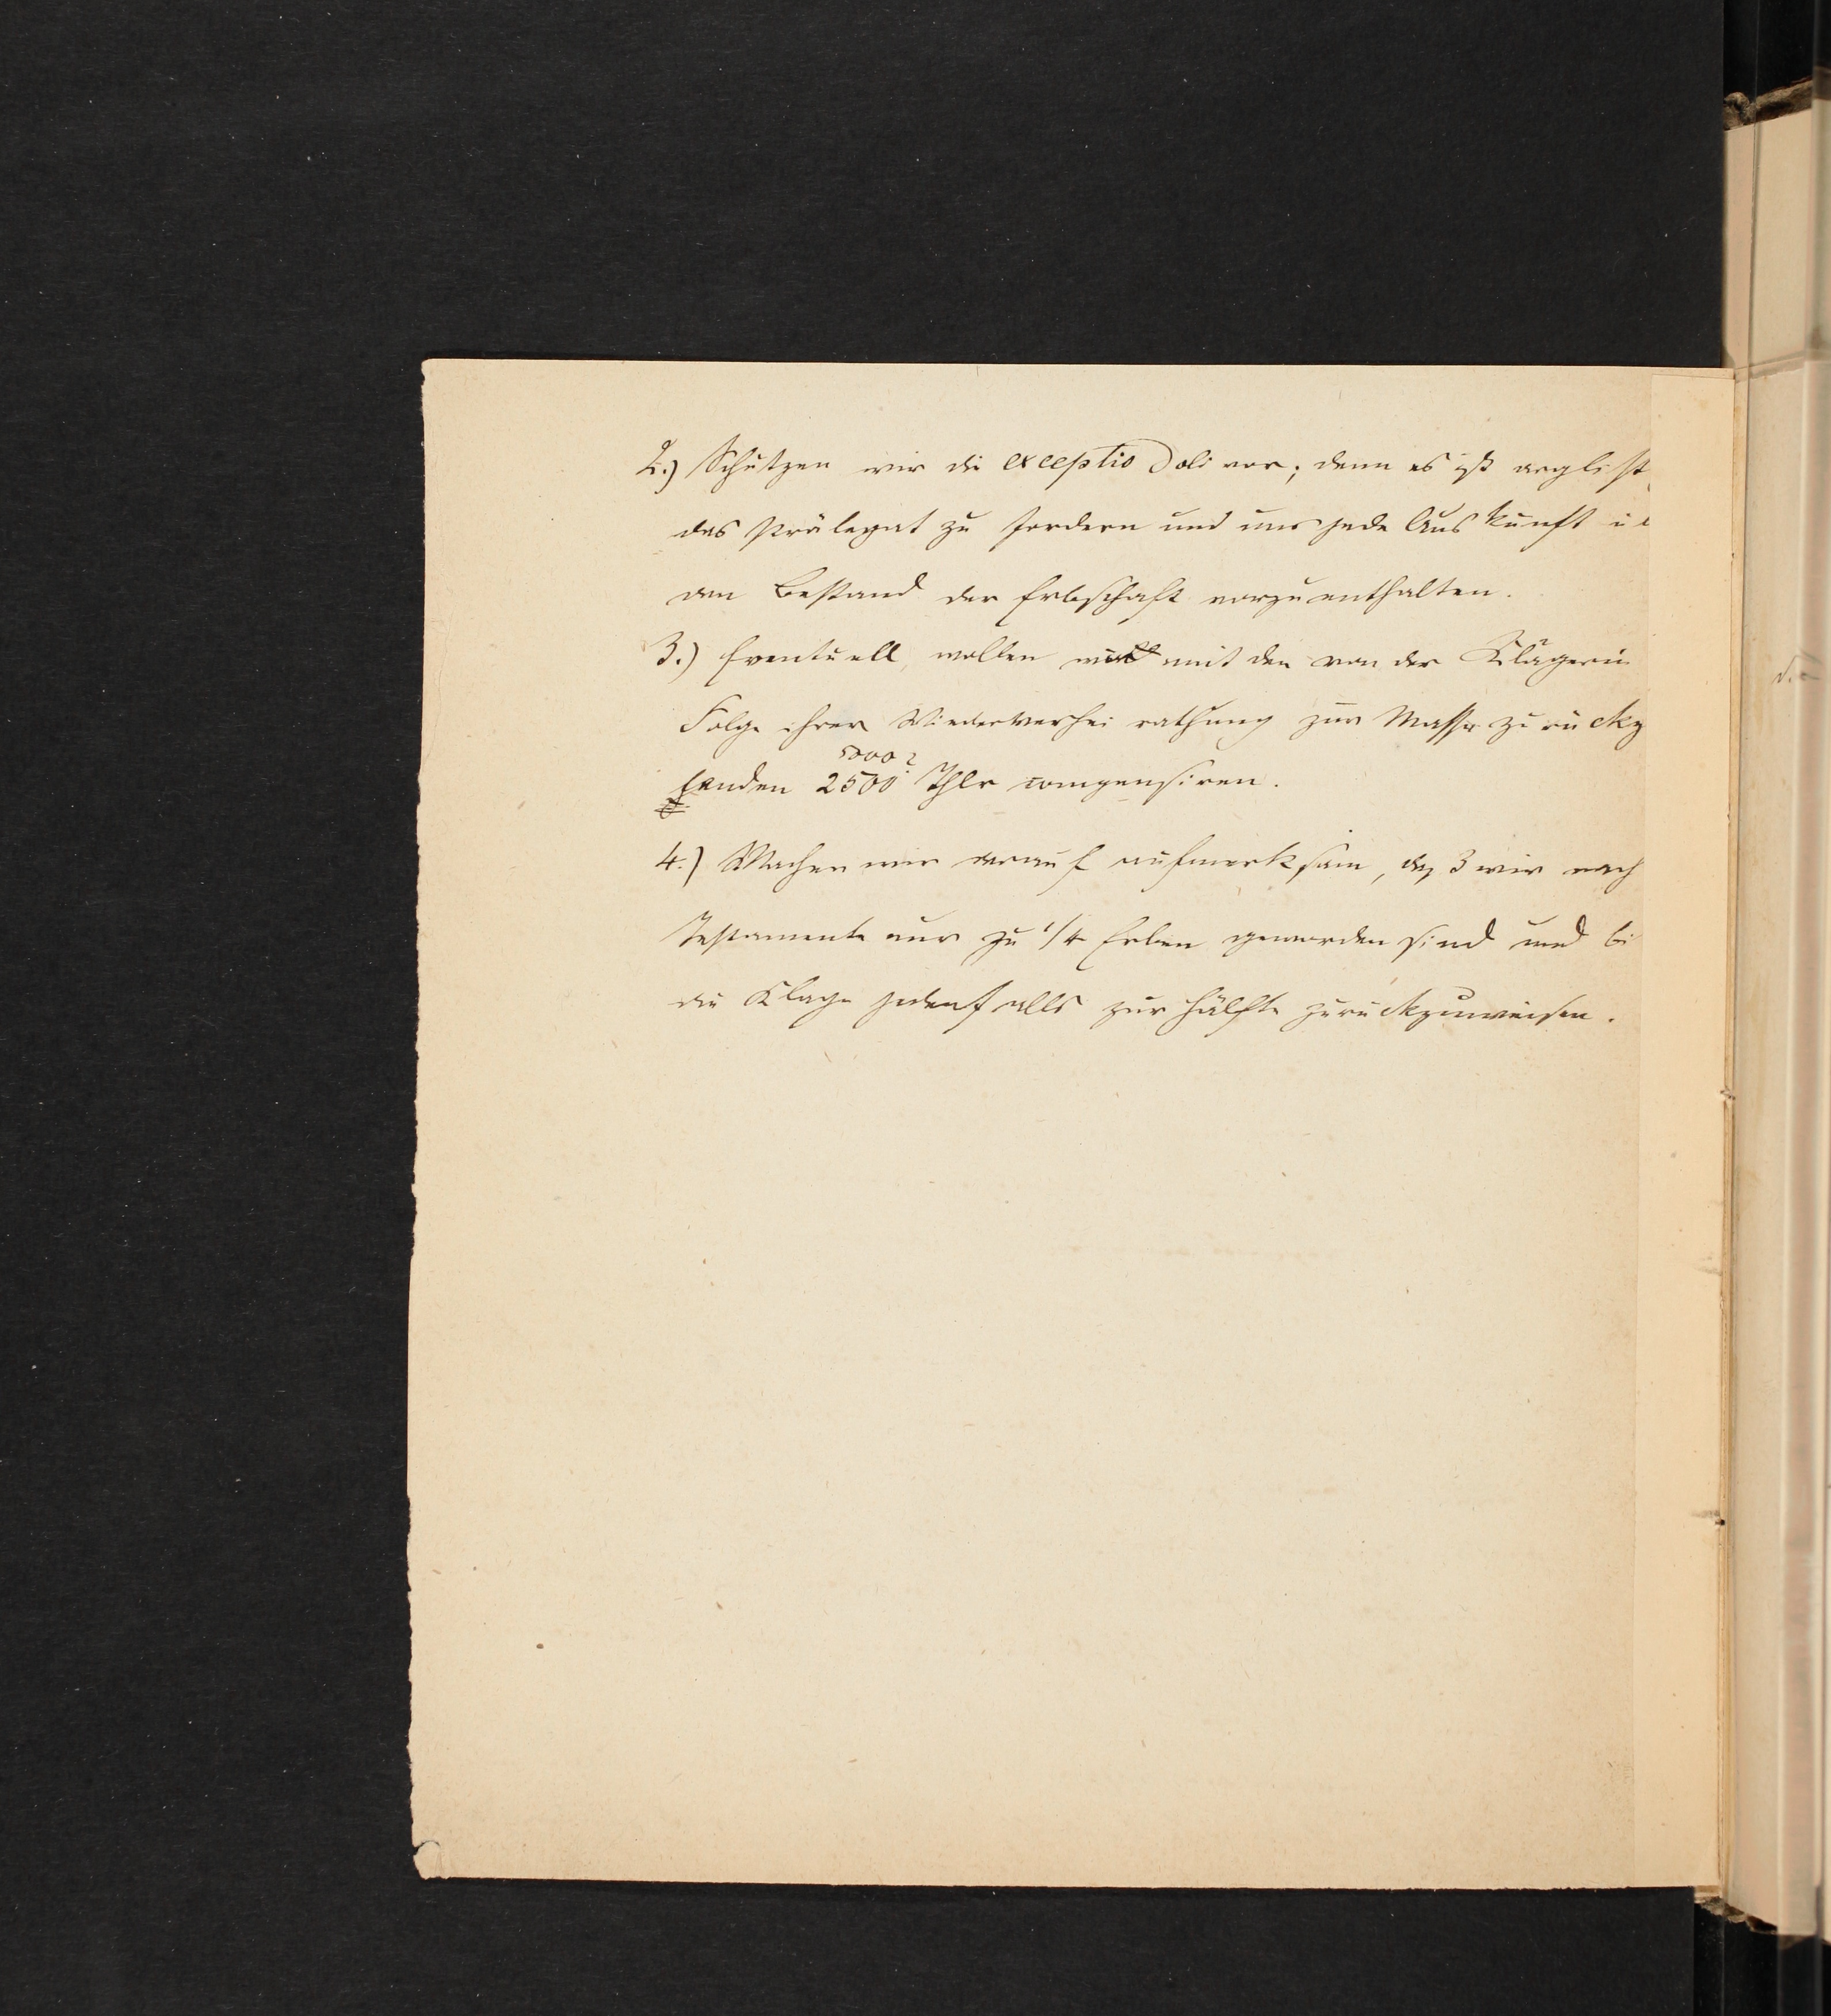 2.) Schützen wir die exceptio doli vor; denn es ist arglist
das Prälegat zu fordern und uns jede Auskunft ü
den Bestand der Erbschaft vorzuenthalten.
3.) Eventuell wollen wir mit den von der Klägerin
Folge ihrer Wiederverheirathung zur Masse zurückz
5000?
lenden 2500 Thlr compensiren.
4.) Machen wir darauf aufmerksam, daß wir nach
Testamente nur zu 1/4 Erben geworden sind und bi
die Klage jedenfalls zur Hälfte zurückzuweisen.